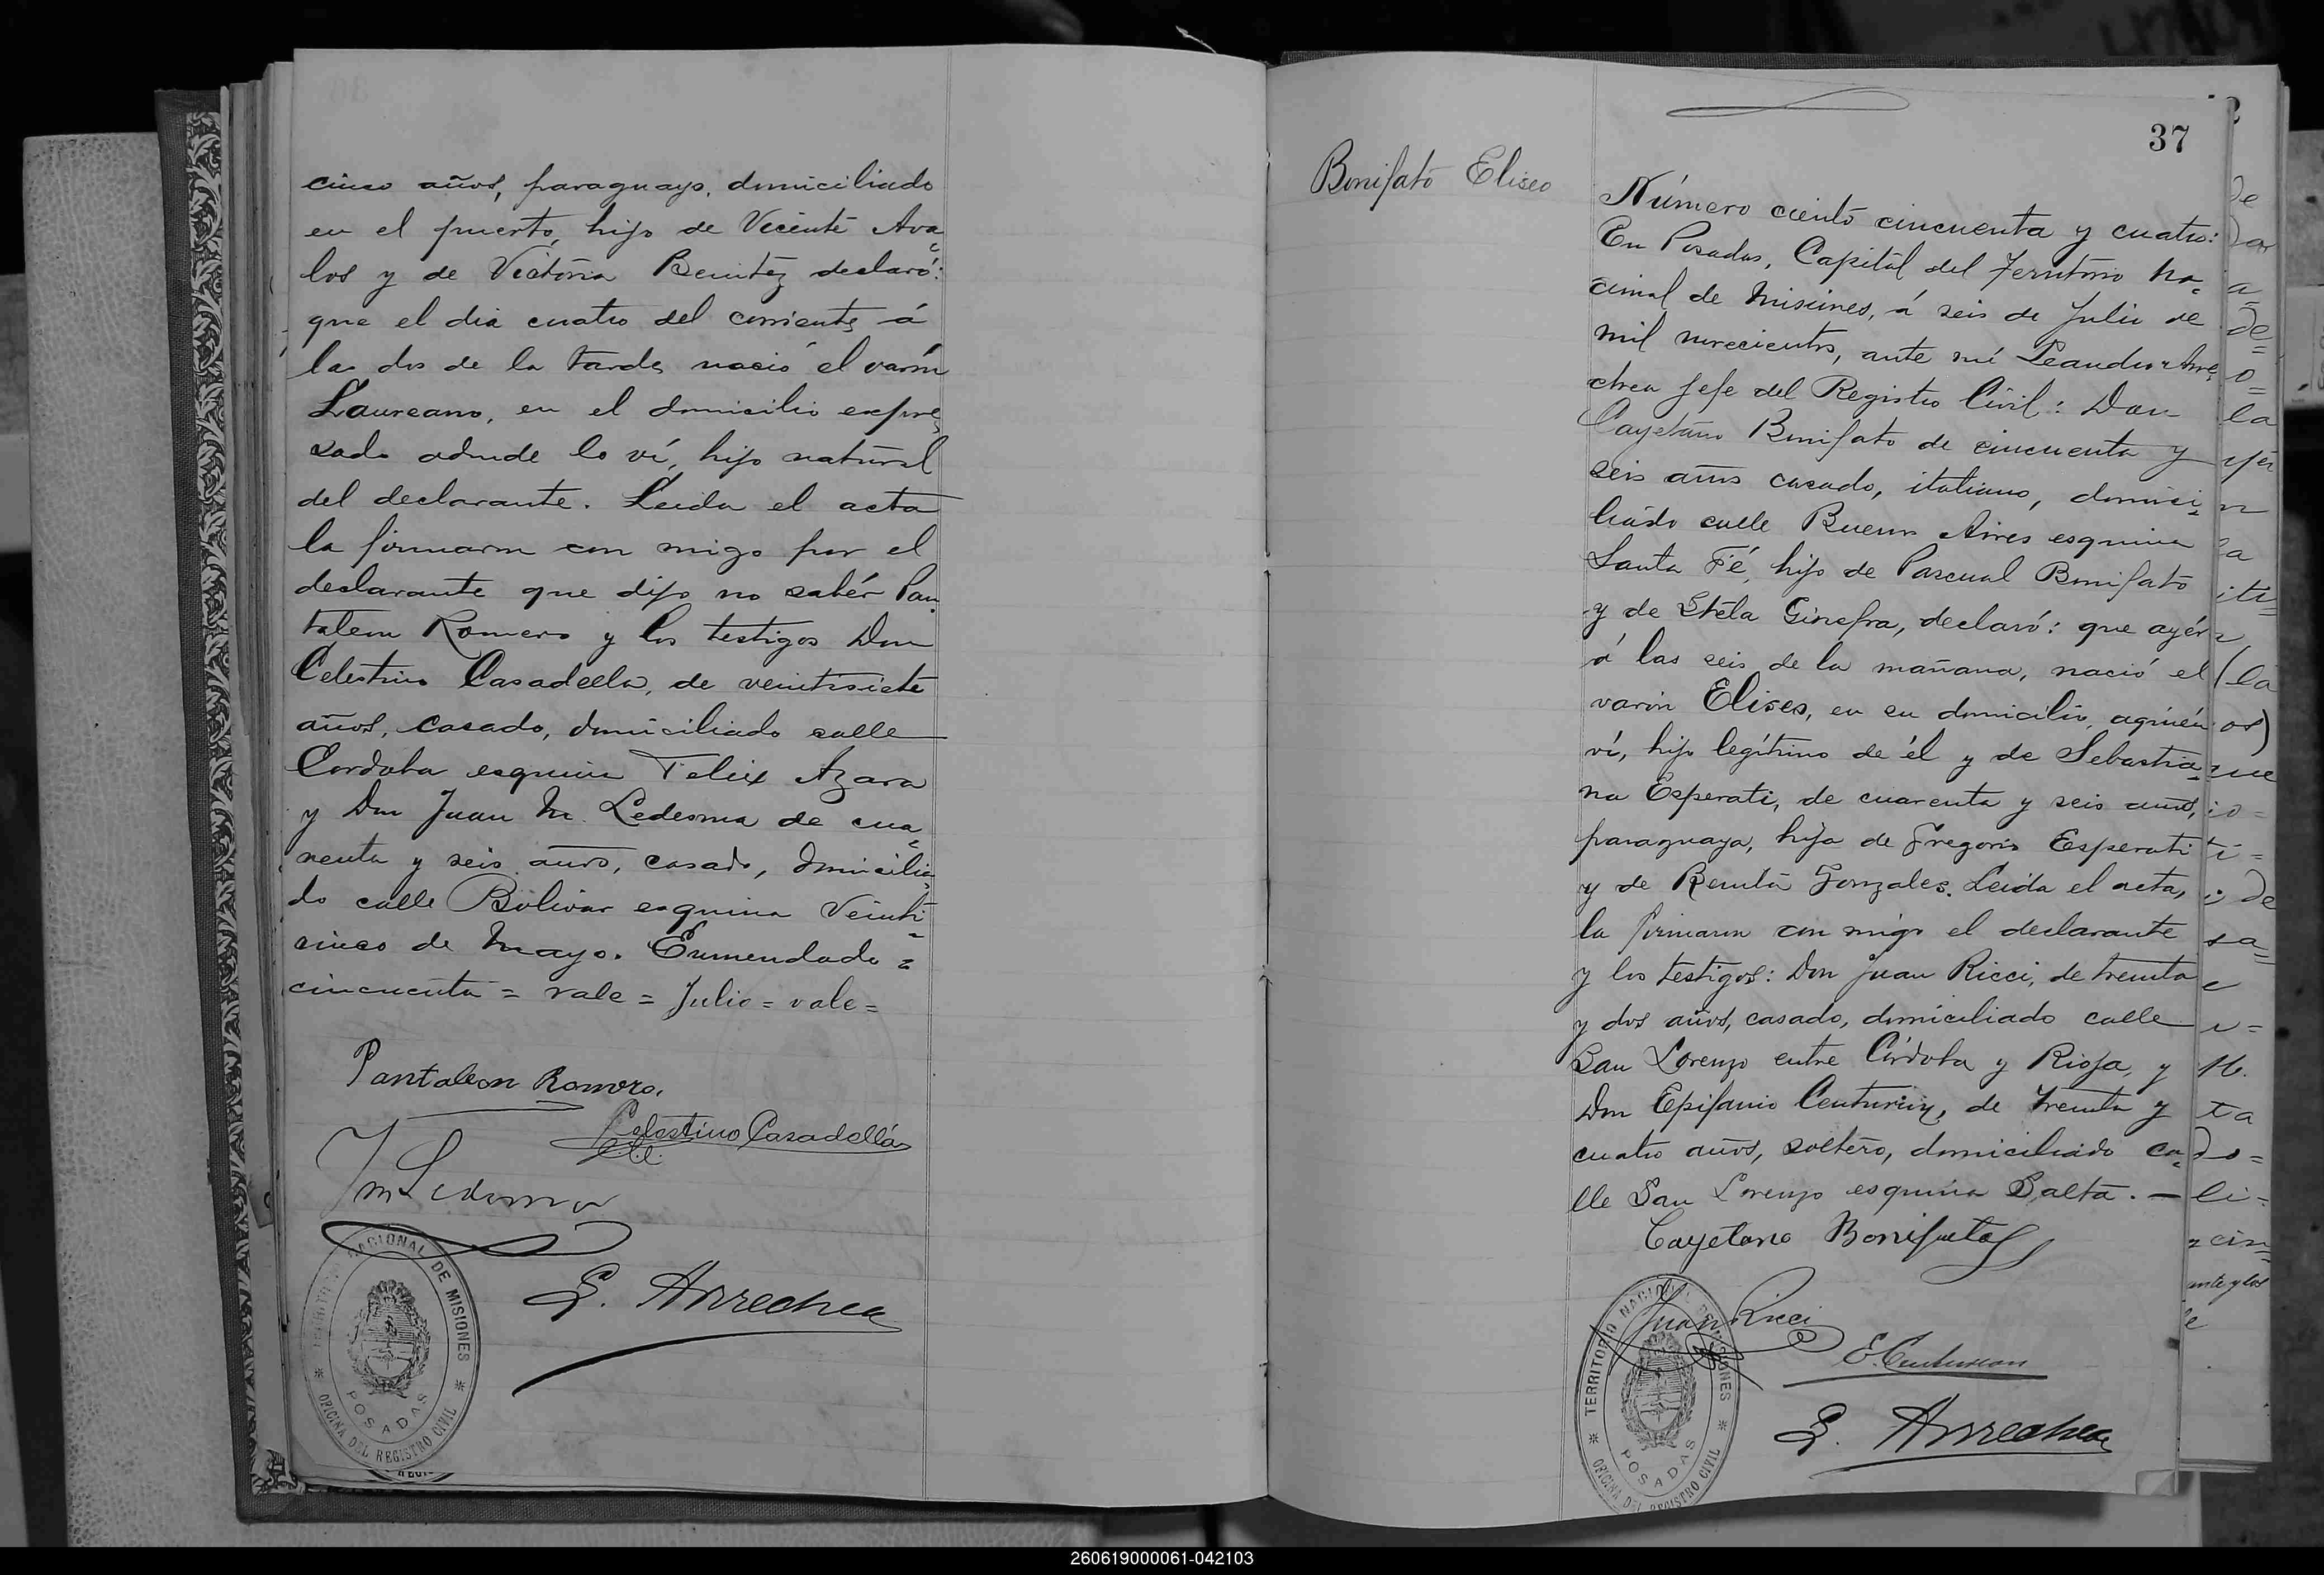 cinco años, paraguayo, domiciliado
en el puerto, hijo de Vicente Ava=
los y de Victoria Benitez declaró:
que el dia cuatro del corriente á
la dos de la tarde nació el varón
Laureano, en el domicilio expre=
sado adonde lo ví, hijo natural
del declarante. Leida el acta
la firmaron con migo por el
declarante que dijo no sabér Pan=
taleon Romero y los testigos Don
Celestino Casadella, de veintisiete
años, casado, domiciliado calle
Cordoba esquina Felix Azara
y Don Juan M. Ledesma de cua=
renta y seis años, casado, domicilia=
do calle Bolivar esquina Veinti=
cinco de Mayo. Enmendado =
cincuenta = vale = Julio = vale =
Pantaleon Romero.
Celestino Casadellá
JM Ledesma
L. Arrechea
NACIONAL DE MISIONES
POSADAS
OFICINA DEL REGISTRO CIVIL
37
Bonifato Eliseo
Número ciento cincuenta y cuatro:
En Posadas, Capital del Territorio Na=
cional de Misiones, á seis de Julio de
mil novecientos, ante mí Leandro Arre=
chea Jefe del Registro Civil: Don
Cayetano Bonifato de cincuenta y
seis años casado, italiano, domici=
liado calle Buenos Aires esquina
Santa Fé, hijo de Pascual Bonifato
y de Stéla Ginefra, declaró: que ayér
á las seis de la mañana, nació el
varón Eliseo, en su domicilio, aquién
ví, hijo legítimo de él y de Sebastia=
na Esperati, de cuarenta y seis años,
paraguaya, hija de Gregorio Esperati
y de Benita Gonzales. Leida el acta,
la firmaron con migo el declarante
y los testigos: Don Juan Ricci, de treinta
y dos años, casado, domiciliado calle
San Lorenzo entre Córdoba y Rioja, y
Don Epifanio Centurión, de treinta y
cuatro años, soltero, domiciliado ca=
lle San Lorenzo esquina Salta. —
Cayetano Bonifato
Juan Ricci
E. Centurion
L. Arrechea
TERRITORIO NACIONAL DE MISIONES
POSADAS
OFICINA DEL REGISTRO CIVIL
260619000061-042103